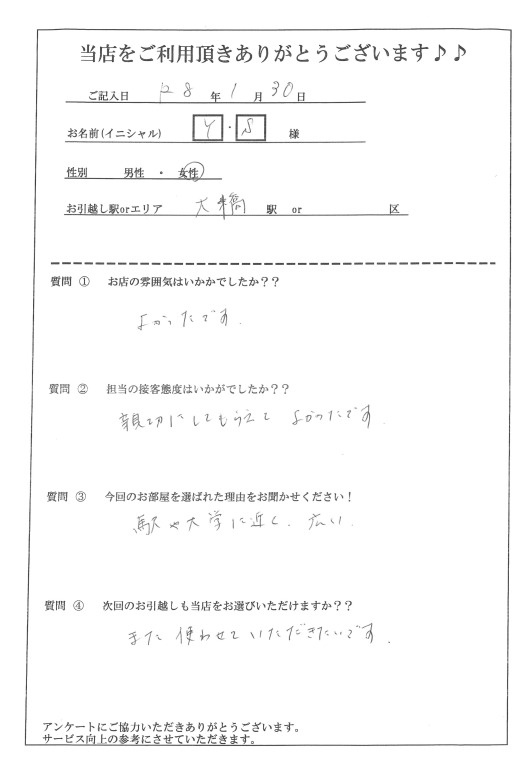 当店をご利用頂きありがとうございます♪♪
ご記入日 R8 年 1 月 30 日
お名前(イニシャル) Y ・ S 様
性別 男性 ・ 女性
お引越し駅orエリア 大橋 駅 or 区
質問 ① お店の雰囲気はいかかでしたか??
よかったです.
質問 ② 担当の接客態度はいかがでしたか??
親切にしてもらえて よかったです.
質問 ③ 今回のお部屋を選ばれた理由をお聞かせください!
駅や大学に近く、広い.
質問 ④ 次回のお引越しも当店をお選びいただけますか??
また 使わせていただきたいです.
アンケートにご協力いただきありがとうございます。
サービス向上の参考にさせていただきます。